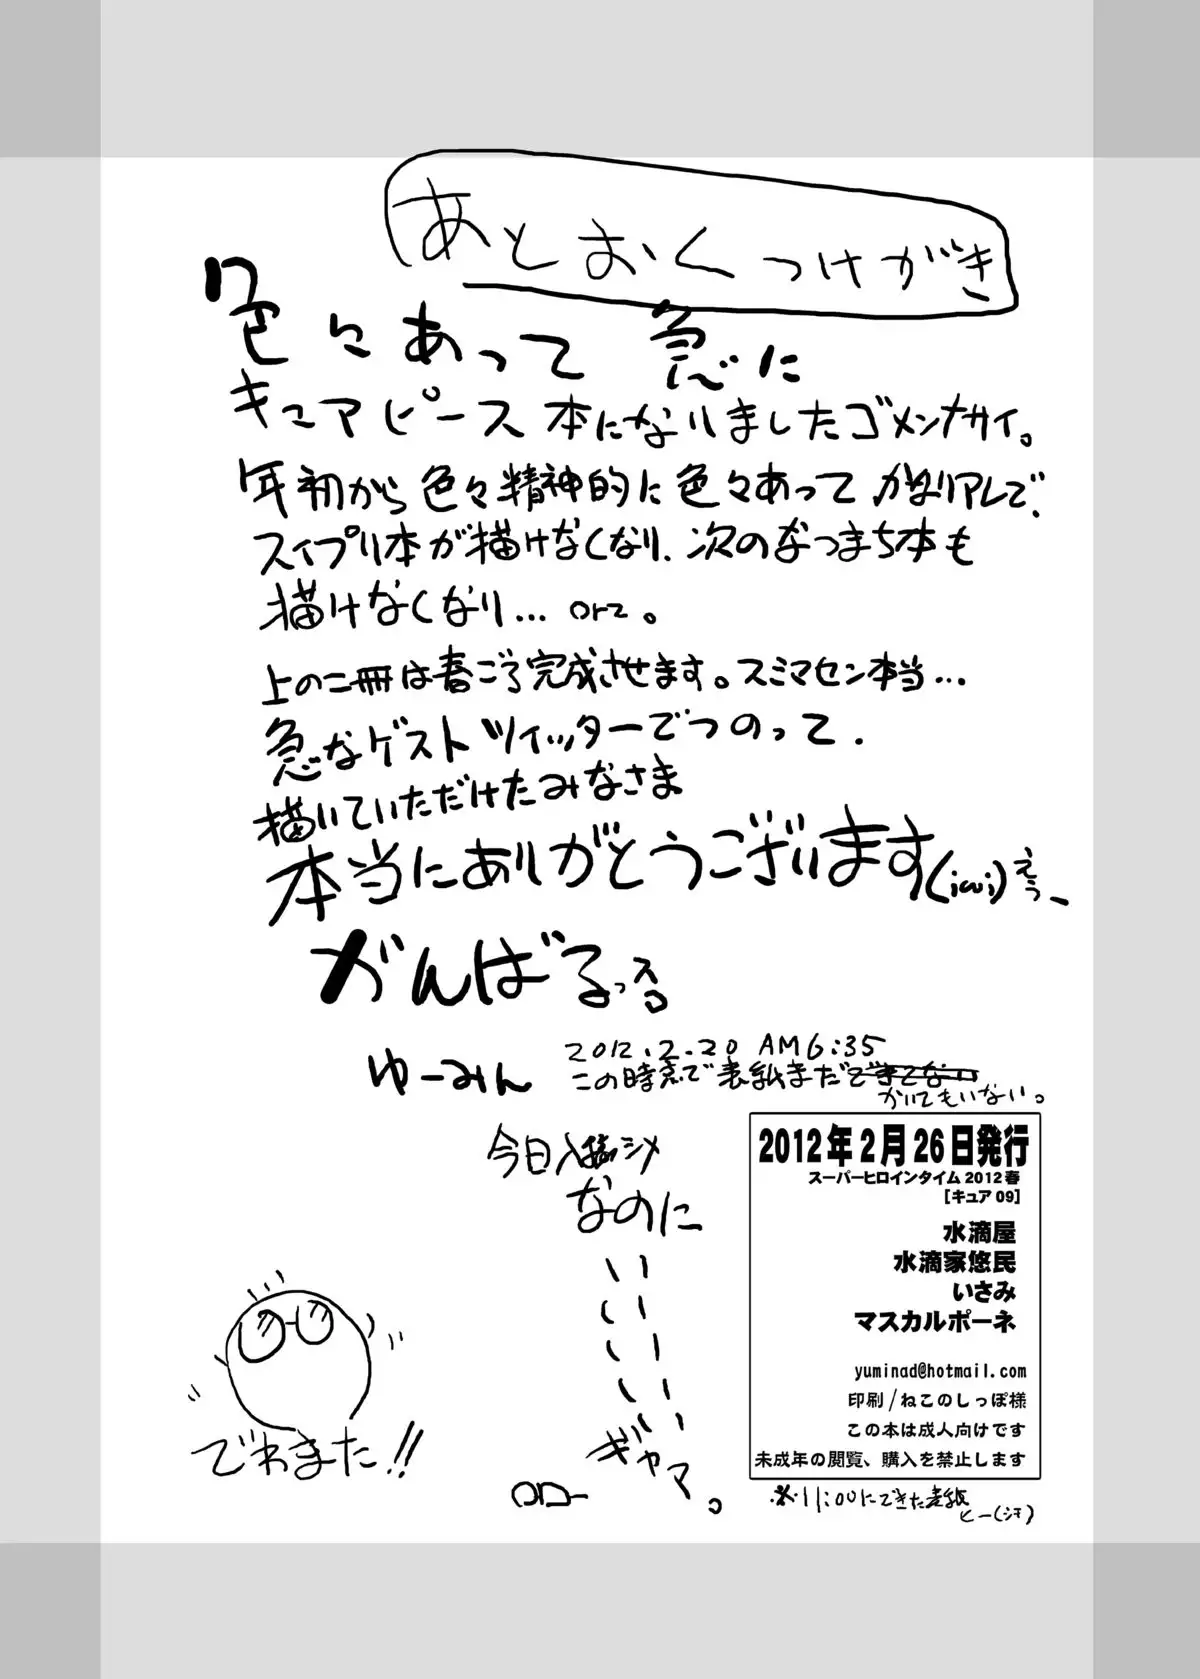 あとおくつけがき
色々あって 急に
キュアピース本になりましたゴメンナサイ。
年初から色々精神的に色々あって かなりアレで、
スイプリ本が描けなくなり、次のなつまち本も
描けなくなり... orz。
上の二冊は春ごろ完成させます。スミマセン本当...
急なゲスト ツイッターでつのって、
描いていただけたみなさま
本当にありがとうございます(;ω;)えぅー
がんばるっスっ
ゆーみん
2012.2.20 AM6:35
この時点で表紙まだできてない
かいてもいない。
今日入稿シメ
なのに
いいいいいい
ギャア。
でわまた!!
2012年2月26日発行
スーパーヒロインタイム2012春
[キュア09]
水滴屋
水滴家悠民
いさみ
マスカルポーネ
yuminad@hotmail.com
印刷/ねこのしっぽ様
この本は成人向けです
未成年の閲覧、購入を禁止します
※11:00にできた表紙